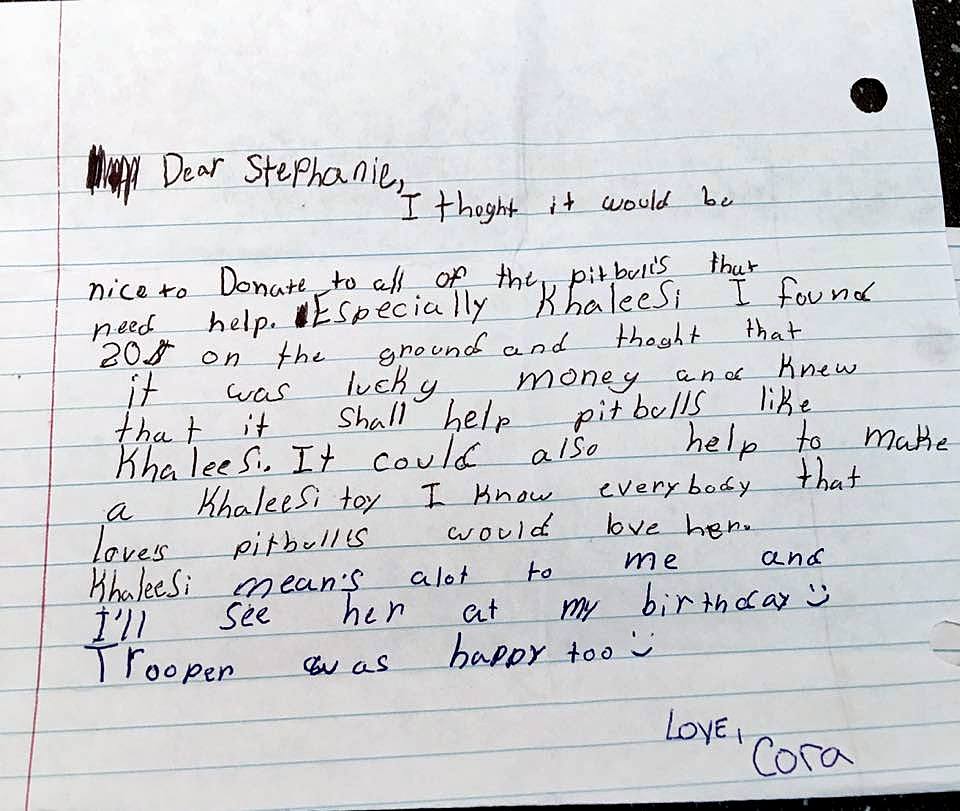 Dear Stephanie,
I thoght it would be
nice to Donate to all of the pitbulls that
need help. Especially Khaleesi I found
20$ on the ground and thoght that
it was lucky money and knew
that it shall help pitbulls like
Khaleesi. It could also help to make
a Khaleesi toy I know everybody that
love's pitbulls would love her.
Khaleesi mean's alot to me and
I'll see her at my birthday :)
Trooper was happy too :)
Love,
Cora